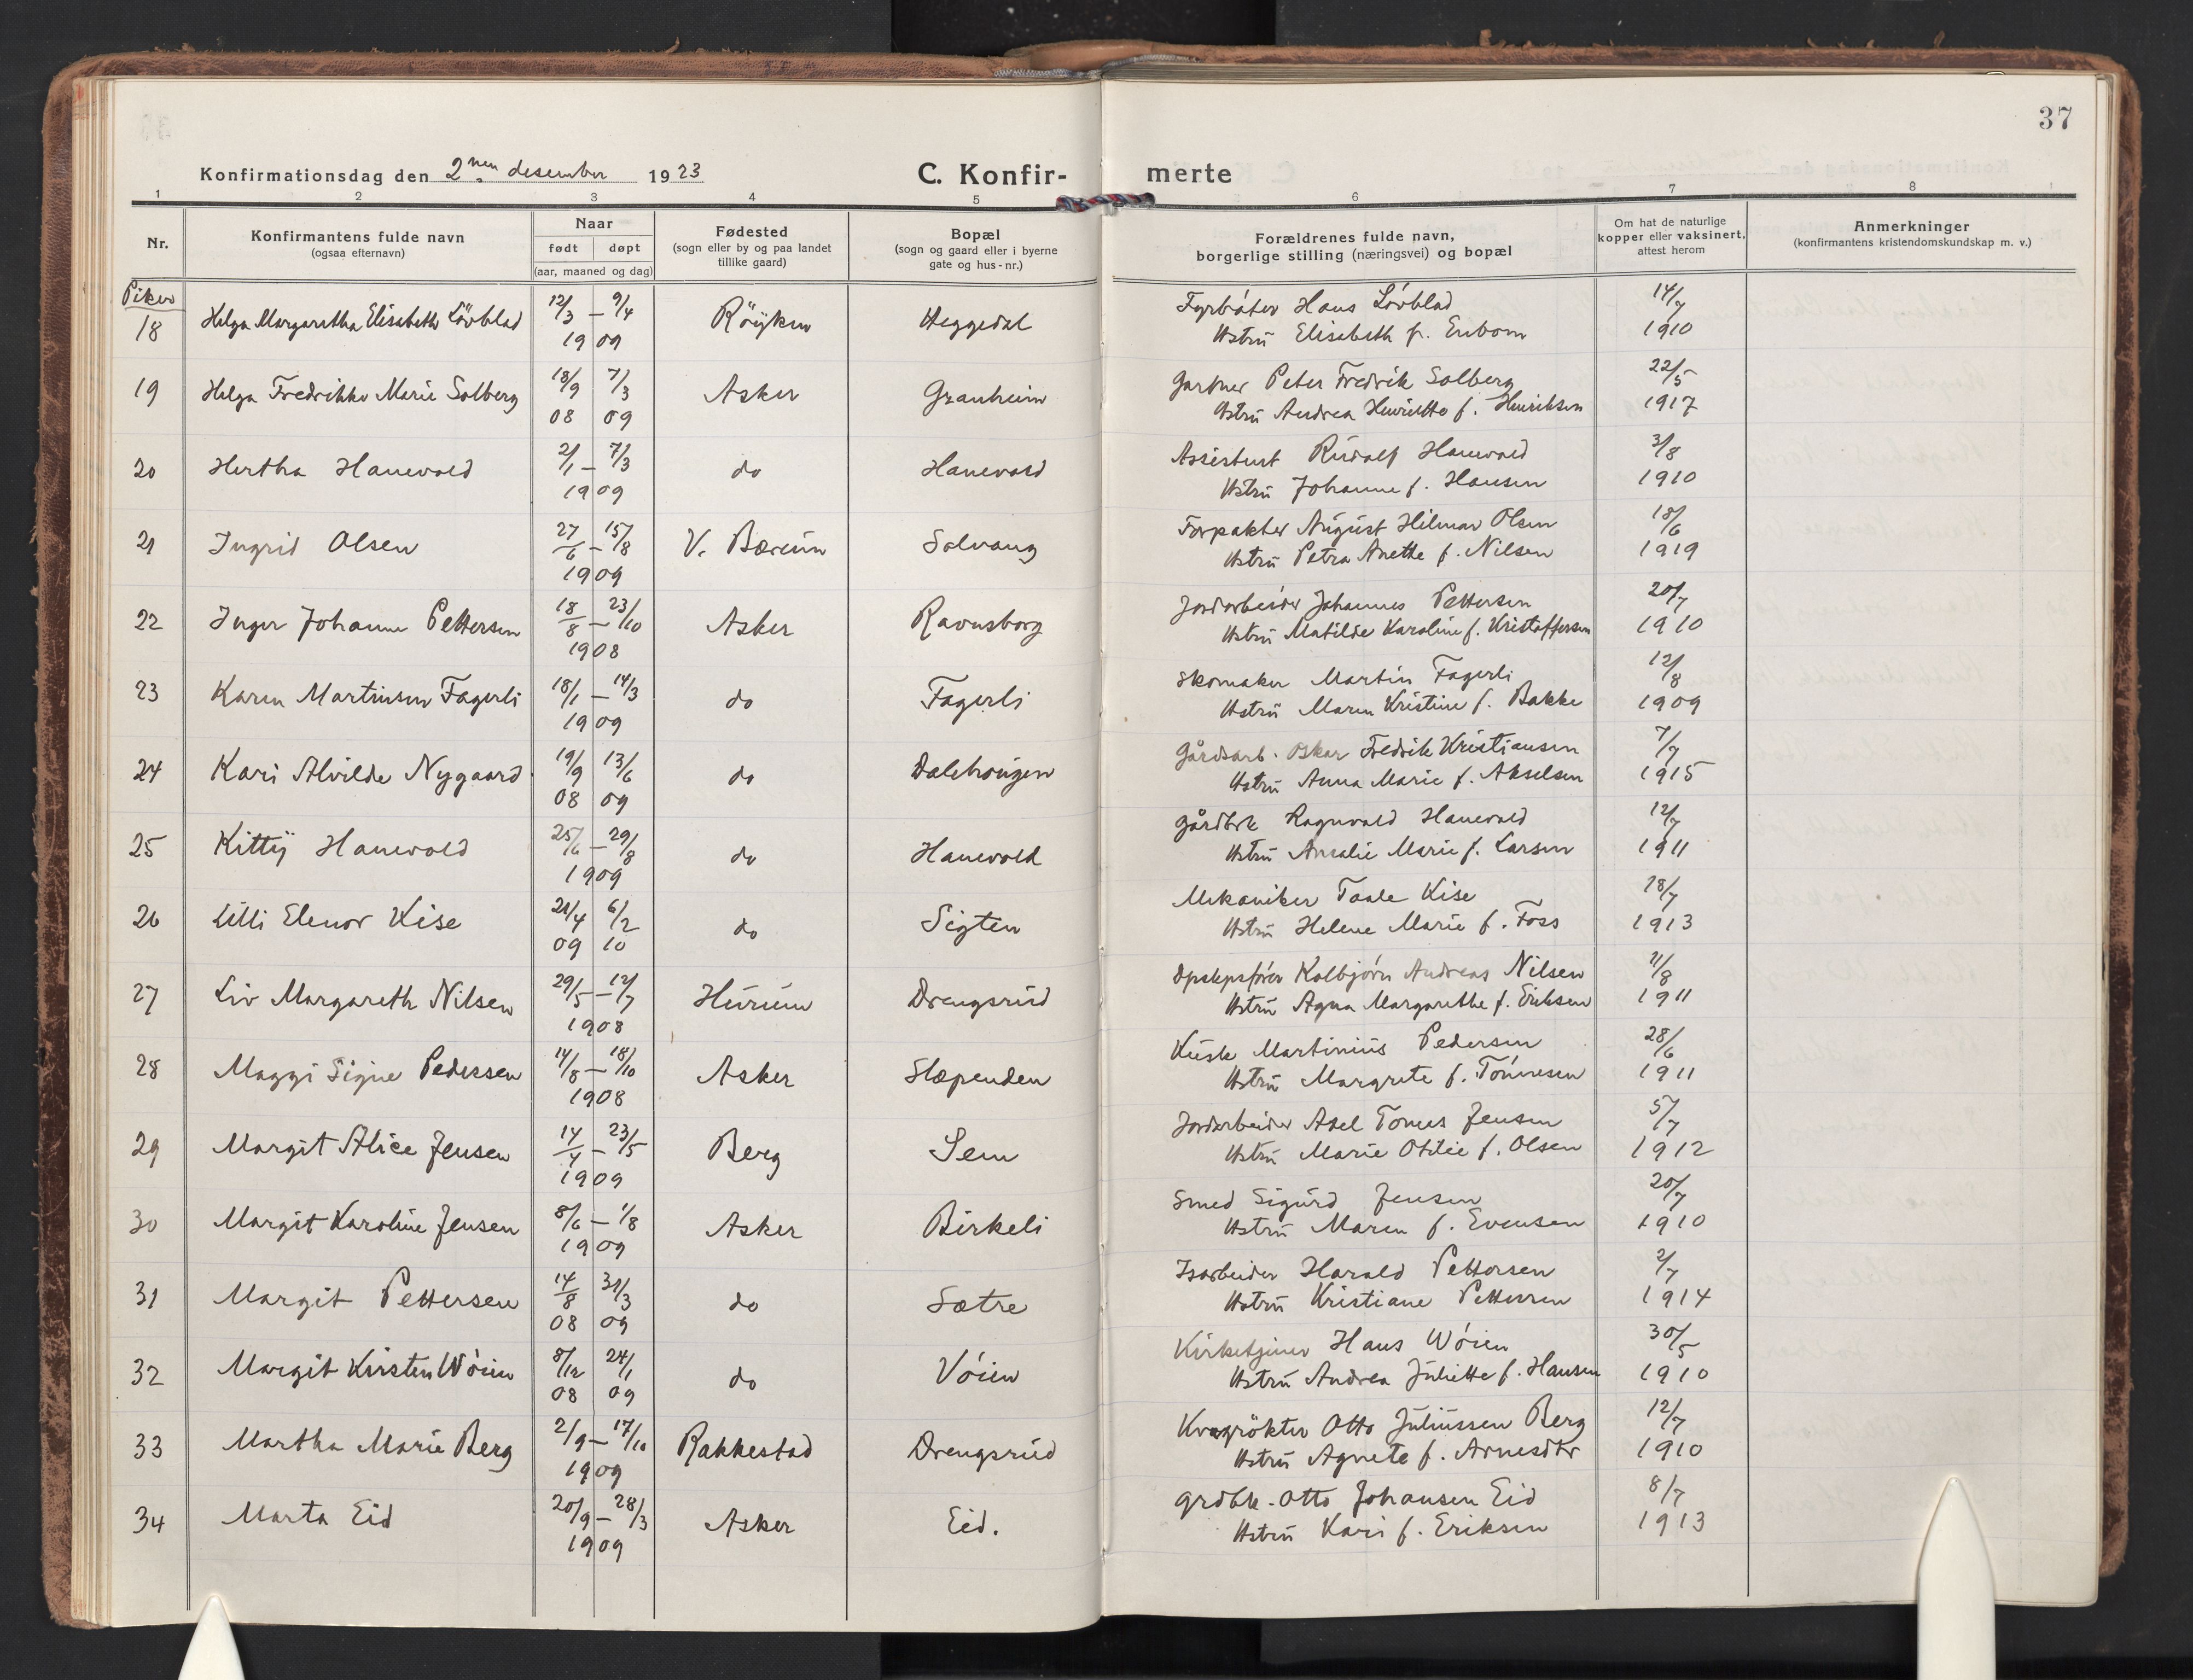 37
Konfirmationsdag den 2nen desember 1923
C. Konfir-
merte
1 2 3 4 5 6 7 8
Nr.
Konfirmantens fulde navn
(ogsaa efternavn)
Naar
født døpt
(aar, maaned og dag)
Fødested
(sogn eller by og paa landet
tillike gaard)
Bopæl
(sogn og gaard eller i byerne
gate og hus-nr.)
Forældrenes fulde navn,
borgerlige stilling (næringsvei) og bopæl
Om hat de naturlige
kopper eller vaksinert,
attest herom
Anmerkninger
(konfirmantens kristendomskundskap m. v.)
Piker
18 Helga Margaretha Elisabeth Lövblad 12/3 – 9/4 1909 Röyken Heggedal
Fyrbøter Hans Lövblad 14/7
Hstru Elisabeth f. Enbom 1910
19 Helga Fredrikke Marie Solberg 18/9 08 7/3 09 Asker Granheim
Gartner Peter Fredrik Solberg 22/5
Hstru Andrea Henriette f. Henriksen 1917
20 Hertha Hanevold 2/1 – 7/3 1909 do Hanevold
Assistent Rudolf Hanevold 3/8
Hstru Johanne f. Hansen 1910
21 Ingrid Olsen 27/6 – 15/8 1909 V. Bærum Solvang
Forpakter August Hilmar Olsen 18/6
Hstru Petra Anette f. Nilsen 1919
22 Inger Johanne Pettersen 18/8 – 23/10 1908 Asker Ravnsborg
Jordarbeider Johannes Pettersen 20/7
Hstru Matilde Karoline f. Kristoffersen 1910
23 Karen Martinsen Fagerli 18/1 – 14/3 1909 do Fagerli
Skomaker Martin Fagerli 12/8
Hstru Maren Kristine f. Bakke 1909
24 Kari Alvilde Nygaard 19/9 08 13/6 09 do Dalehaugen
Gårdsarb. Oskar Fredrik Kristiansen 7/7
Hstru Anna Marie f. Akselsen 1915
25 Kitty Hanevold 25/6 – 29/8 1909 do Hanevold
Gårdbrk Ragnvald Hanevold 12/7
Hstru Amalie Marie f. Larsen 1911
26 Lilli Elenor Kise 21/4 09 6/2 10 do Sigten
Mekaniker Taale Kise 18/7
Hstru Helene Marie f. Foss 1913
27 Liv Margareth Nilsen 29/5 – 12/7 1908 Hurum Drengsrud
Kolbjørn Andreas Nilsen 11/8
Hstru Agna Margarethe f. Eriksen 1911
28 Maggi Signe Pedersen 14/8 – 18/10 1908 Asker Slæpenden
Kusk Martinius Pedersen 28/6
Hstru Margrete f. Tønnesen 1911
29 Margit Alice Jensen 14/4 – 23/5 1909 Berg Sem
Jordarbeider Axel Tomes Jensen 5/7
Hstru Marie Otilie f. Olsen 1912
30 Margit Karoline Jensen 8/6 – 1/8 1909 Asker Birkeli
Smed Sigurd Jensen 20/7
Hstru Maren f. Evensen 1910
31 Margit Pettersen 14/8 08 31/3 09 do Sætre
Isarbeider Harald Pettersen 2/7
Hstru Kristiane Pettersen 1914
32 Margit Kirsten Wøien 8/12 08 24/1 09 do Vøien
Kirketjener Hans Wøien 30/5
Hstru Andrea Juliette f. Hansen 1910
33 Martha Marie Berg 2/9 – 17/10 1909 Rakkestad Drengsrud
Kvægrökter Otto Juliussen Berg 12/7
Hstru Agnete f. Arnesdtr 1910
34 Marta Eid 20/9 – 28/3 1909 Asker Eid.
Grdbk. Otto Johansen Eid 8/7
Hstru Kari f. Eriksen 1913